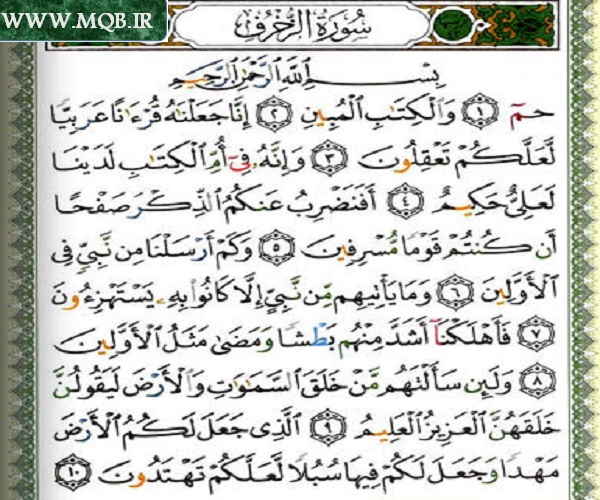 WWW.MQB.IR
سُورَةُ الزُّخْرُفِ
بِسْمِ ٱللَّهِ ٱلرَّحْمَٰنِ ٱلرَّحِيمِ
حمٓ ١ وَٱلْكِتَٰبِ ٱلْمُبِينِ ٢ إِنَّا جَعَلْنَٰهُ قُرْءَٰنًا عَرَبِيًّا
لَّعَلَّكُمْ تَعْقِلُونَ ٣ وَإِنَّهُۥ فِىٓ أُمِّ ٱلْكِتَٰبِ لَدَيْنَا
لَعَلِىٌّ حَكِيمٌ ٤ أَفَنَضْرِبُ عَنكُمُ ٱلذِّكْرَ صَفْحًا
أَن كُنتُمْ قَوْمًا مُّسْرِفِينَ ٥ وَكَمْ أَرْسَلْنَا مِن نَّبِىٍّ فِى
ٱلْأَوَّلِينَ ٦ وَمَا يَأْتِيهِم مِّن نَّبِىٍّ إِلَّا كَانُوا۟ بِهِۦ يَسْتَهْزِءُونَ
٧ فَأَهْلَكْنَآ أَشَدَّ مِنْهُم بَطْشًا وَمَضَىٰ مَثَلُ ٱلْأَوَّلِينَ
٨ وَلَئِن سَأَلْتَهُم مَّنْ خَلَقَ ٱلسَّمَٰوَٰتِ وَٱلْأَرْضَ لَيَقُولُنَّ
خَلَقَهُنَّ ٱلْعَزِيزُ ٱلْعَلِيمُ ٩ ٱلَّذِى جَعَلَ لَكُمُ ٱلْأَرْضَ
مَهْدًا وَجَعَلَ لَكُمْ فِيهَا سُبُلًا لَّعَلَّكُمْ تَهْتَدُونَ ١٠